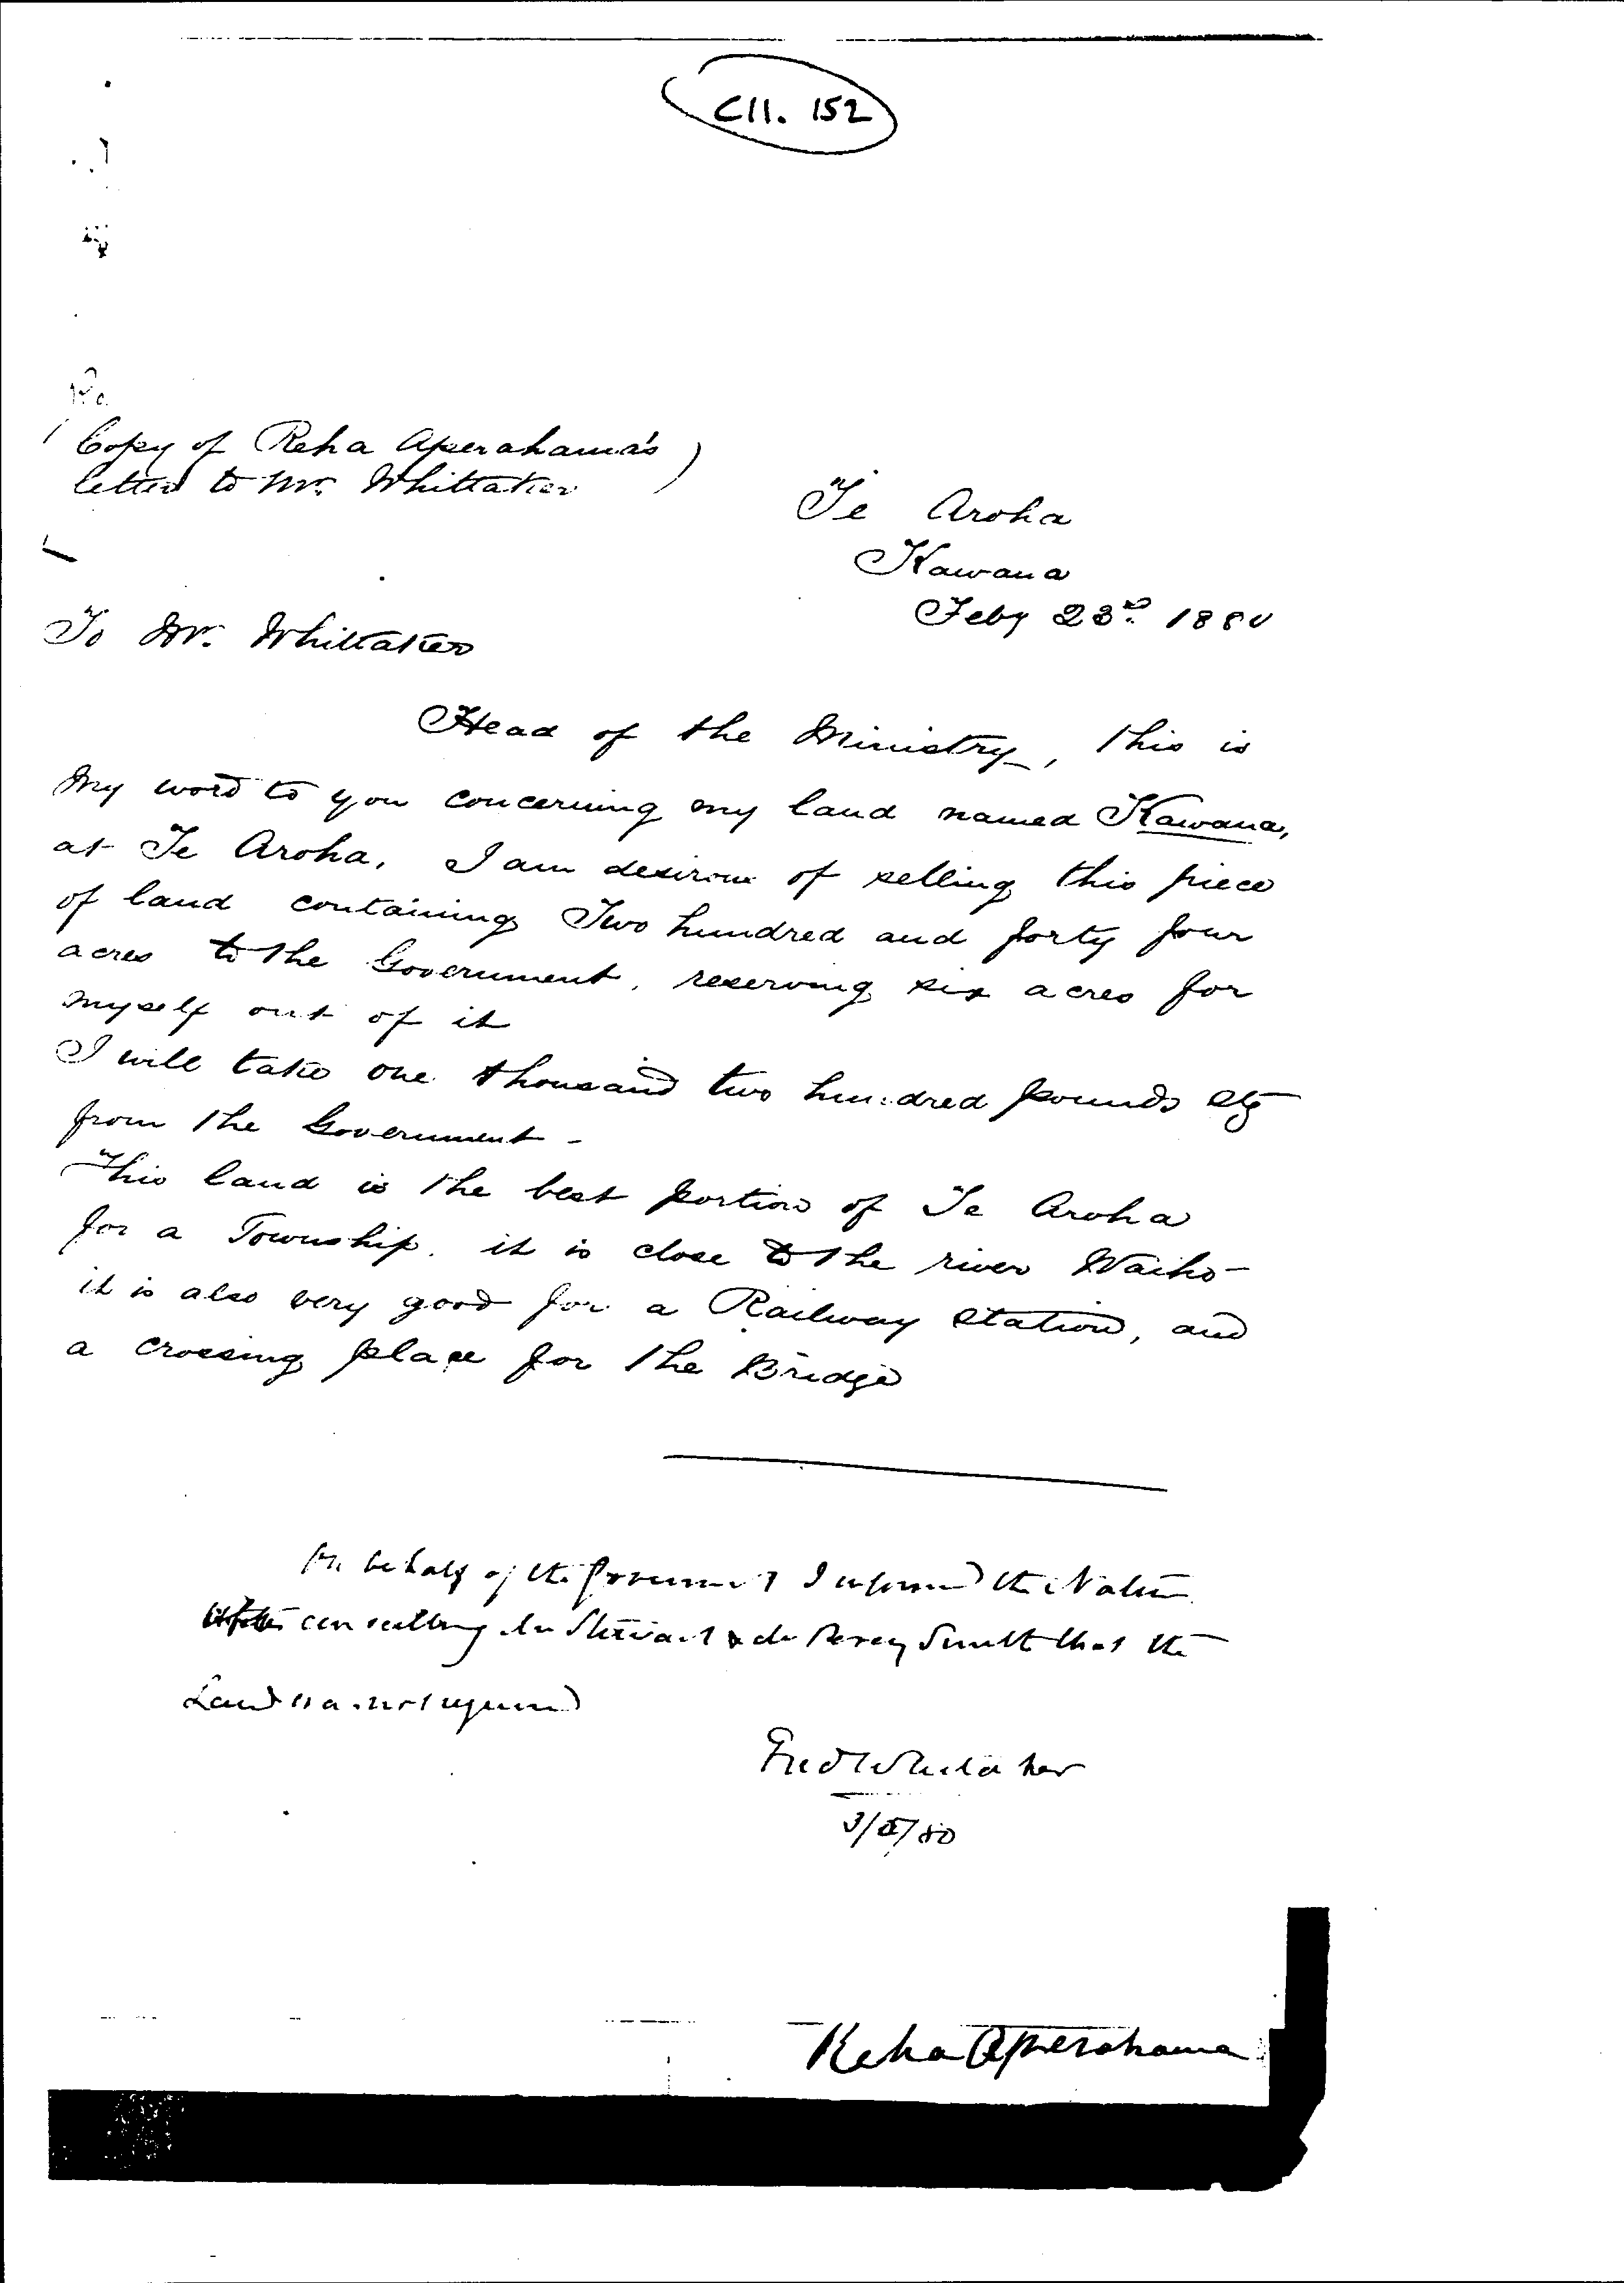 C11. 152
Copy of Reha Aperahama's
letter to Mr. Whittaker
Te Aroha
Kawana
Feby 23rd. 1880
To Mr. Whittaker
Head of the Ministry, this is
my word to you concerning my land named Kawana,
at Te Aroha. I am desirous of selling this piece
of land containing Two hundred and forty four
acres to the Government, reserving six acres for
myself out of it
I will take one thousand two hundred pounds stg
from the Government -
This land is the best portion of Te Aroha
for a Township. it is close to the river Waiho -
it is also very good for a Railway Station, and
a crossing place for the Bridge
On behalf of the Government I informed the Native
consulting Mr Stewart & Mr Percy Smith that the
Land was not required
Fred Whitaker
80
Reha Aperahama